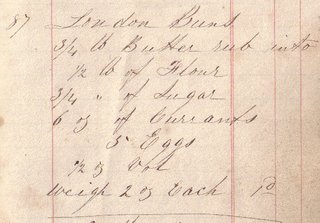 87 London Buns
3/4 lb Butter rub into
1/2 lb of Flour
3/4 " of Sugar
6 oz of Currants
5 Eggs
1/2 oz Vol
Weigh 2 oz Each 1d